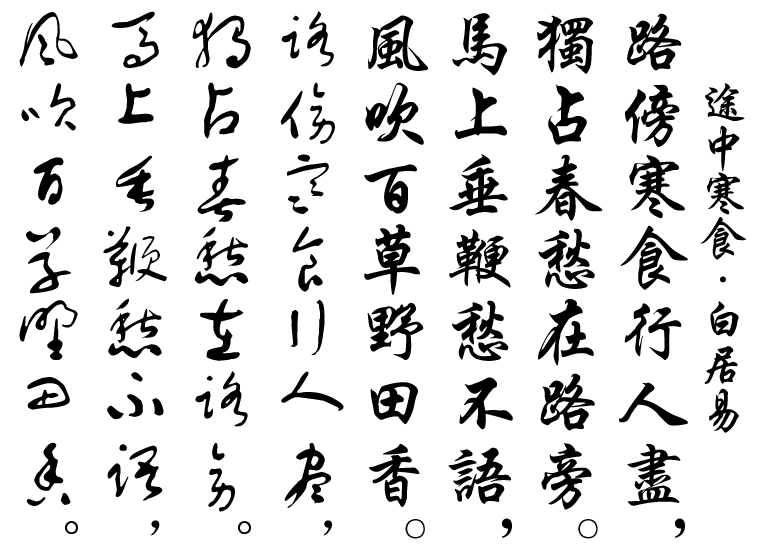 途中寒食·白居易
路傍寒食行人盡，
獨占春愁在路旁。
馬上垂鞭愁不語，
風吹百草野田香。
路傍寒食行人盡，
獨占春愁在路旁。
馬上垂鞭愁不語，
風吹百草野田香。